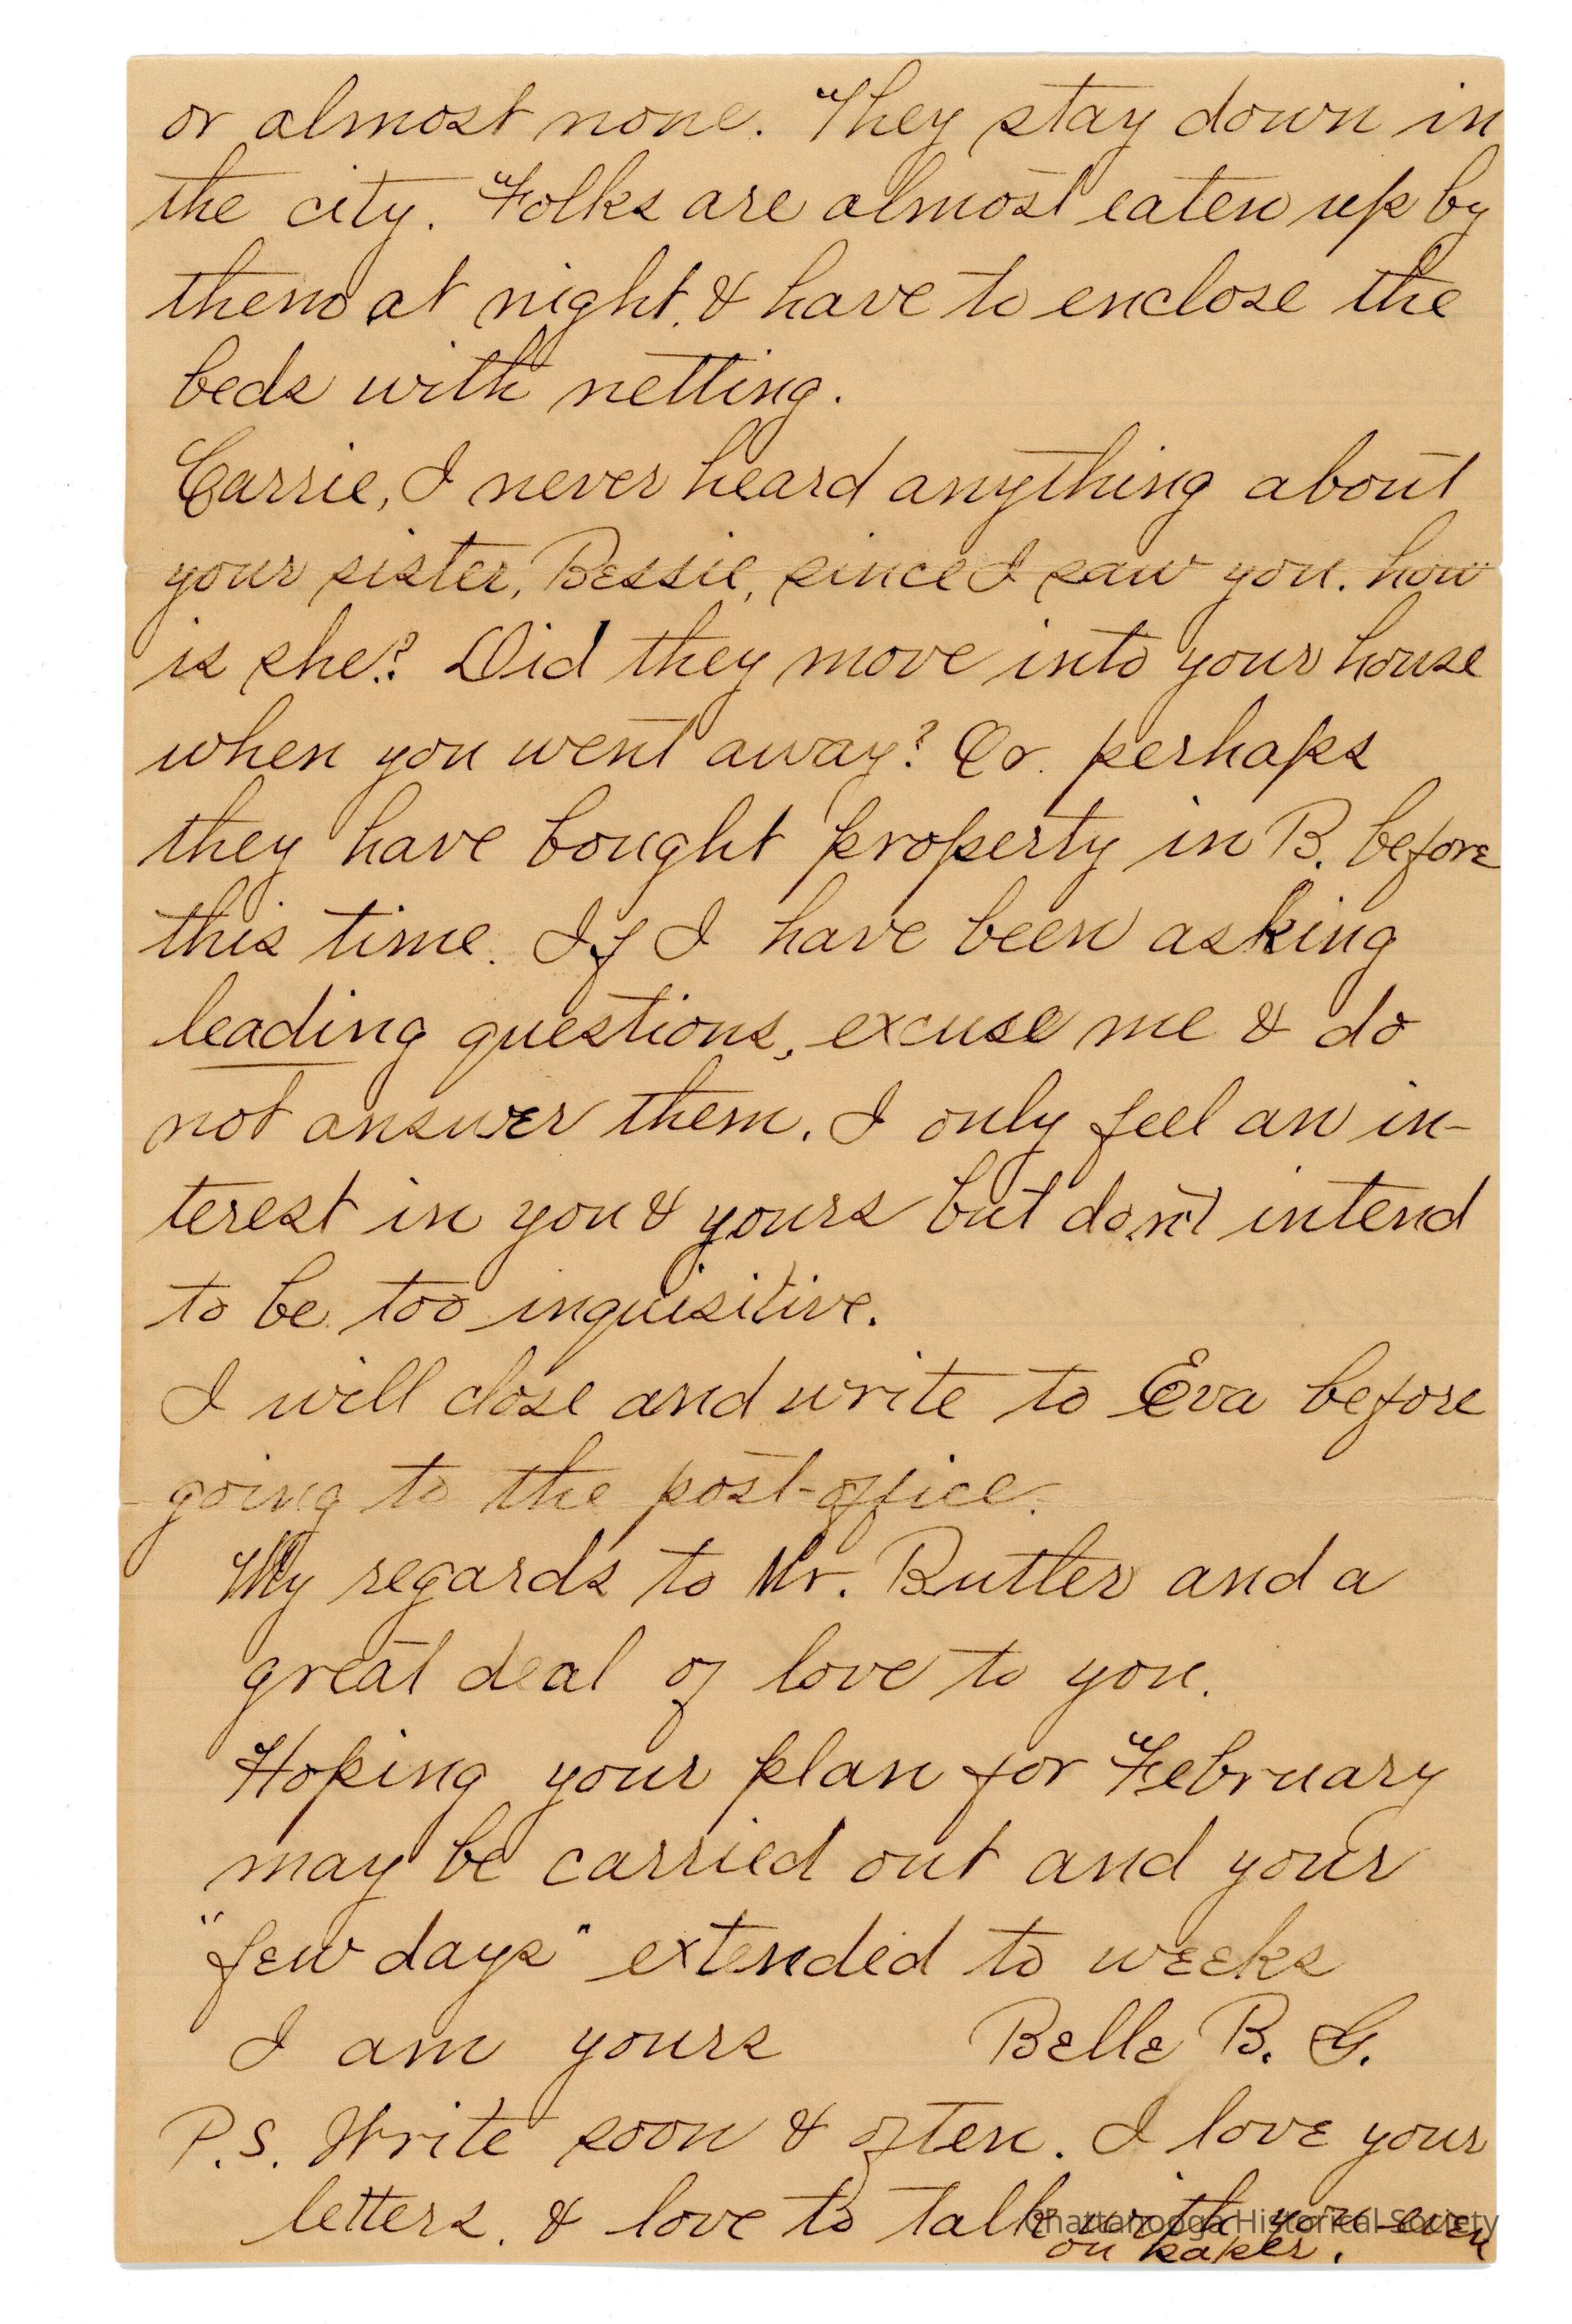 or almost none. They stay down in
the city. Folks are almost eaten up by
them at night. & have to enclose the
beds with netting.
Carrie, I never heard anything about
your sister, Bessie, since I saw you. how
is she? Did they move into your house
when you went away? Or perhaps
they have bought property in B. before
this time. If I have been asking
leading questions, excuse me & do
not answer them. I only feel an in-
terest in you & yours but don't intend
to be too inquisitive.
I will close and write to Eva before
going to the post-office.
My regards to Mr. Butler and a
great deal of love to you.
Hoping your plan for February
may be carried out and your
"few days" extended to weeks
I am yours Belle B. G.
P.S. Write soon & often. I love your
letters. & love to talk with you even
on paper.
Chattanooga Historical Society